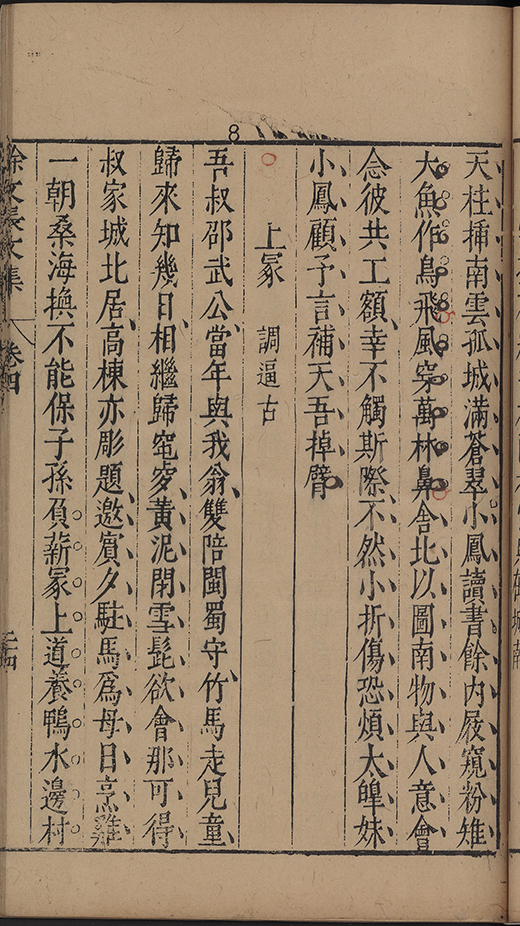 天柱插南雲孤城滿蒼翠小鳳讀書餘内屐窺粉雉
大魚作鳥飛風穿萬林鼻舎北以圖南物與人意會
念彼共工額幸不觸斯際不然小折傷恐煩太皡妹
小鳳顧予言補天吾掉臂
上冢 調逼古
吾叔邵武公當年與我翁雙陪閩蜀守竹馬走兒童
歸來知幾日相繼歸窀穸黄泥閉雪髭欲會那可得
叔家城北居高棟亦彫題邀賓夕駐馬爲母日烹雞
一朝桑海換不能保子孫負薪冢上道養鴨水邊村
徐文長文集 卷四 二四
8